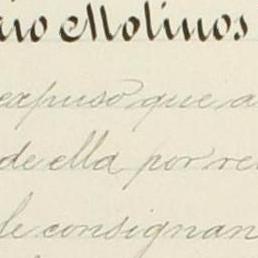 rio Molinos
expuso que a
de ella por re
le consignan